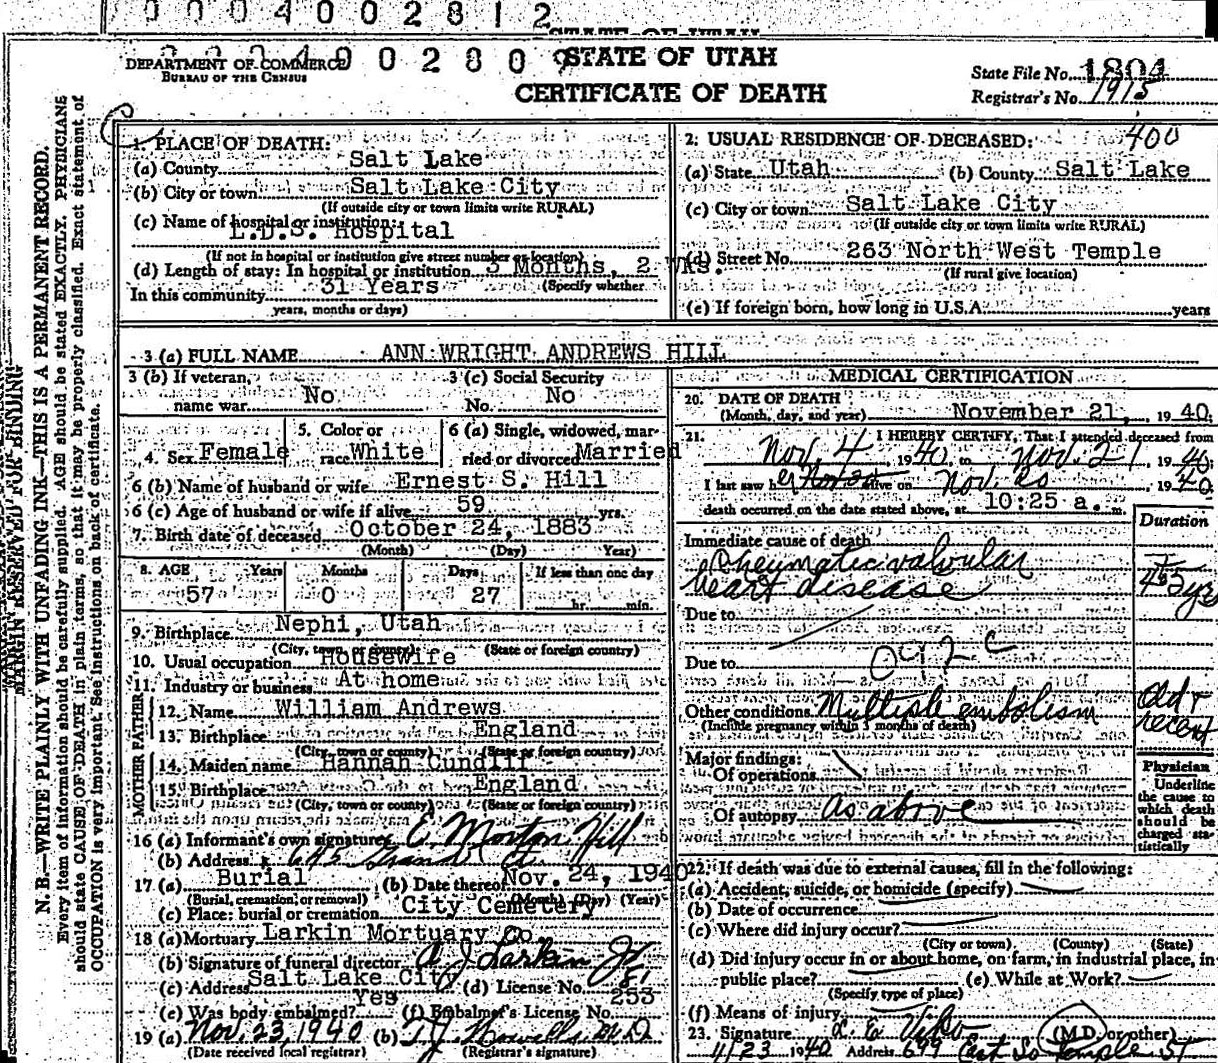 0 0 0 4 0 0 2 8 1 2
STATE OF UTAH
0 0 0 4 0 0 2 8 0 9
DEPARTMENT OF COMMERCE
BUREAU OF THE CENSUS
STATE OF UTAH
CERTIFICATE OF DEATH
State File No. 1804
Registrar's No. 1915
MARGIN RESERVED FOR BINDING
N. B.—WRITE PLAINLY WITH UNFADING INK—THIS IS A PERMANENT RECORD.
Every item of information should be carefully supplied. AGE should be stated EXACTLY. PHYSICIANS
should state CAUSE OF DEATH in plain terms, so that it may be properly classified. Exact statement of
OCCUPATION is very important. See instructions on back of certificate.
1. PLACE OF DEATH:
(a) County Salt Lake
(b) City or town Salt Lake City
(If outside city or town limits write RURAL)
(c) Name of hospital or institution:
L.D.S. Hospital
(If not in hospital or institution give street number or location)
(d) Length of stay: In hospital or institution 3 Months, 2 Wks.
(Specify whether
In this community 31 Years
years, months or days)
2. USUAL RESIDENCE OF DECEASED: 400
(a) State Utah (b) County Salt Lake
(c) City or town Salt Lake City
(If outside city or town limits write RURAL)
(d) Street No. 263 North West Temple
(If rural give location)
(e) If foreign born, how long in U.S.A. years
3 (a) FULL NAME ANN WRIGHT ANDREWS HILL
3 (b) If veteran, name war No
3 (c) Social Security No. No
4. Sex Female
5. Color or race White
6 (a) Single, widowed, married or divorced Married
6 (b) Name of husband or wife Ernest S. Hill
6 (c) Age of husband or wife if alive 59 yrs.
7. Birth date of deceased October 24, 1883
(Month) (Day) (Year)
8. AGE Years Months Days If less than one day
57 0 27 hr. min.
9. Birthplace Nephi, Utah
(City, town, or county) (State or foreign country)
10. Usual occupation Housewife
11. Industry or business At home
FATHER
12. Name William Andrews
13. Birthplace England
(City, town or county) (State or foreign country)
MOTHER
14. Maiden name Hannah Cundiff
15. Birthplace England
(City, town or county) (State or foreign country)
16 (a) Informant's own signature E. Morton Hill
(b) Address 645 Grand
17 (a) Burial (b) Date thereof Nov. 24, 1940
(Burial, cremation, or removal) (Month) (Day) (Year)
(c) Place: burial or cremation City Cemetery
18 (a) Mortuary Larkin Mortuary Co.
(b) Signature of funeral director A J Larkin Jr
(c) Address Salt Lake City (d) License No. 81
(e) Was body embalmed? Yes (f) Embalmer's License No. 253
19 (a) Nov. 23, 1940 (b) T.J. Howells M.D.
(Date received local registrar) (Registrar's signature)
MEDICAL CERTIFICATION
20. DATE OF DEATH
(Month, day, and year) November 21, 1940
21. I HEREBY CERTIFY, That I attended deceased from
Nov. 4 1940 to Nov. 21 1940
I last saw her alive on Nov. 20 1940
death occurred on the date stated above, at 10:25 a. m.
Duration
Immediate cause of death
Rheumatic valvular
heart disease
Due to
Due to
Other conditions Multiple embolism Old + recent
(Include pregnancy within 3 months of death)
Major findings:
Of operations
Of autopsy as above
Physician
Underline
the cause to
which death
should be
charged sta-
tistically
22. If death was due to external causes, fill in the following:
(a) Accident, suicide, or homicide (specify)
(b) Date of occurrence
(c) Where did injury occur?
(City or town) (County) (State)
(d) Did injury occur in or about home, on farm, in industrial place, in
public place? (e) While at Work?
(Specify type of place)
(f) Means of injury
23. Signature L. E. Viko (M.D. or other)
11/23 1940 Address 699 East So Temple St